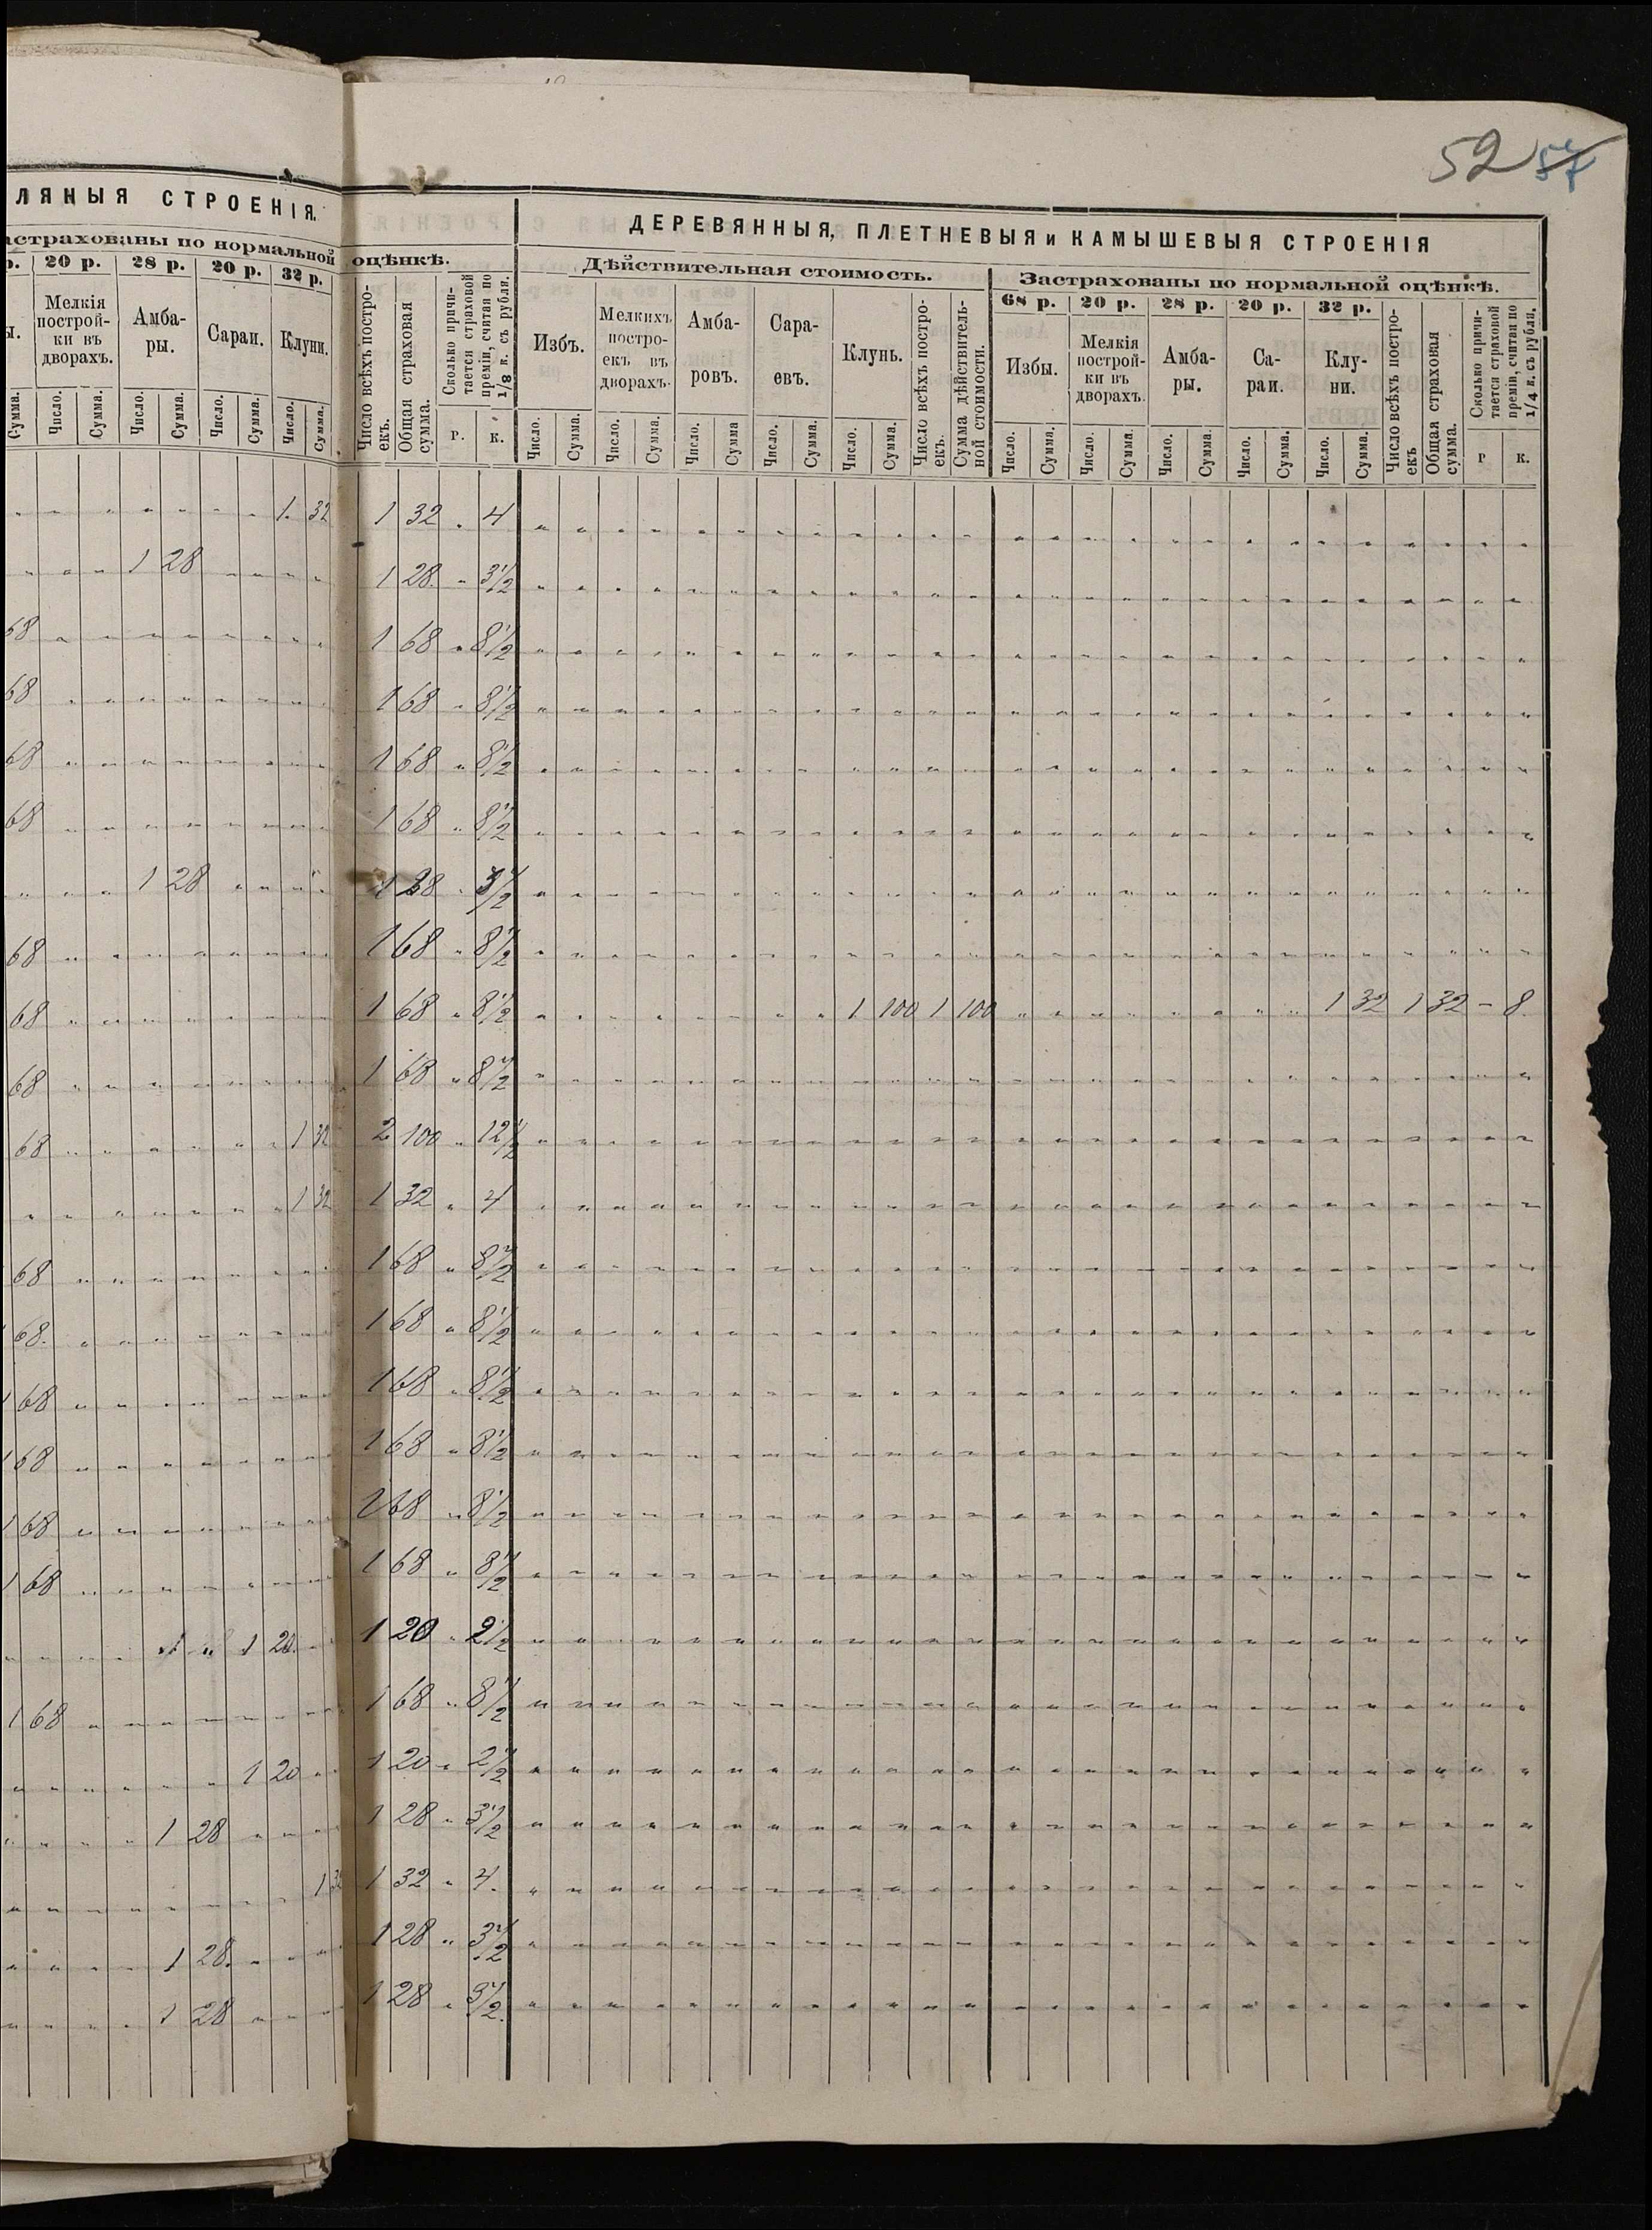 52 57
ЛЯНЫЯ СТРОЕНІЯ.
ДЕРЕВЯННЫЯ, ПЛЕТНЕВЫЯ и КАМЫШЕВЫЯ СТРОЕНІЯ
астрахованы по нормальной оцѣнкѣ.
Дѣйствительная стоимость.
Застрахованы по нормальной оцѣнкѣ.
р. 20 р. 28 р. 20 р. 32 р.
68 р. 20 р. 28 р. 20 р. 32 р.
ы. Мелкія построй-ки въ дворахъ. Амба-ры. Сараи. Клуни. Число всѣхъ постро-екъ. Общая страховая сумма. Сколько причи-тается страховой преміи, считая по 1/8 к. съ рубля.
Избъ. Мелкихъ постро-екъ въ дворахъ. Амба-ровъ. Сара-евъ. Клунь. Число всѣхъ постро-екъ. Сумма дѣйствитель-ной стоимости.
Избы. Мелкія построй-ки въ дворахъ. Амба-ры. Са-раи. Клу-ни. Число всѣхъ постро-екъ Общая страховая сумма. Сколько причи-тается страховой преміи, считая по 1/4 к. съ рубля.
Сумма. Число. Сумма. Число. Сумма. Число. Сумма. Число. Сумма. Р. К. Число. Сумма. Число. Сумма. Число. Сумма Число. Сумма. Число. Сумма. Число. Сумма. Число. Сумма. Число. Сумма. Число. Сумма. Число. Сумма. Р К.
1. 32 1 32 „ 4
1 28 1 28. „ 3 1/2
68 1 68 „ 8 1/2
68 1 68 „ 8 1/2
68 1 68 „ 8 1/2
68 1 68 „ 8 1/2
1 28 1 28 „ 3 1/2
68 1 68 „ 8 1/2
68 1 68 „ 8 1/2 1 100 1 100 1 32 1 32 – 8.
68 1 68 „ 8 1/2
68 1 32 2 100 „ 12 1/2
1 32 1 32 „ 4
68 1 68 „ 8 1/2
68. 1 68 „ 8 1/2
1 68 1 68 „ 8 1/2
1 68 1 68 „ 8 1/2
1 68 1 68 „ 8 1/2
1 68 1 68 „ 8 1/2
1 20. 1 20 „ 2 1/2
1 68 1 68 „ 8 1/2
1 20 1 20 „ 2 1/2
1 28 1 28 „ 3 1/2
1 32 1 32 „ 4.
1 28. 1 28 „ 3 1/2
1 28 1 28 „ 3 1/2.